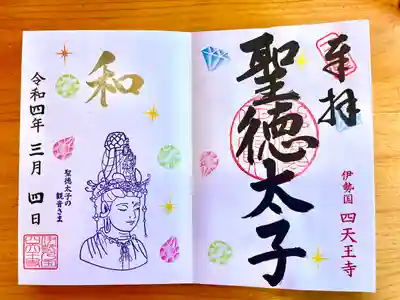 奉拝
聖徳太子
伊勢国 四天王寺
和
令和四年 三月 四日
聖徳太子の
観音さま